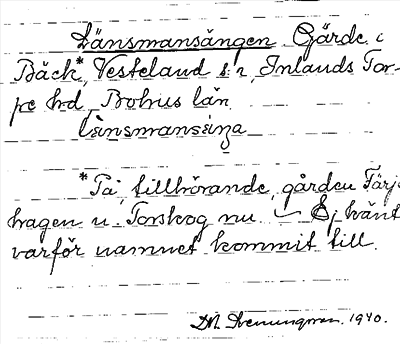 Länsmansängen Gärde i
Bäck*, Vesteland s:n, Inlands Tor-
pe hd Bohus län
*På, tillhörande, gården Färje
hagen u. Torskog nu. Ej känt
varför namnet kommit till.
1940.